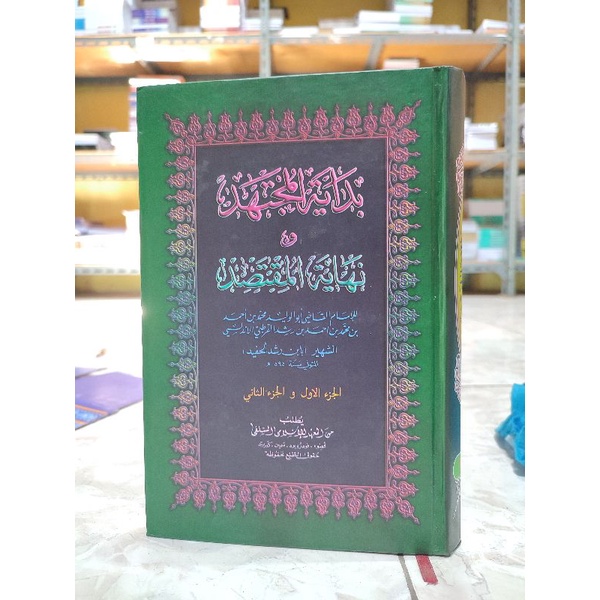 بداية المجتهد
و
نهاية المقتصد
للإمام القاضي أبو الوليد محمد بن أحمد
بن محمد بن أحمد بن رشد القرطبي الأندلسي
الشهير (بابن رشد الحفيد)
المتوفى سنة ٥٩٥ هـ
الجزء الاول و الجزء الثاني
يطلب
من المعهد الإسلامي السلفي
حقوق الطبع محفوظة